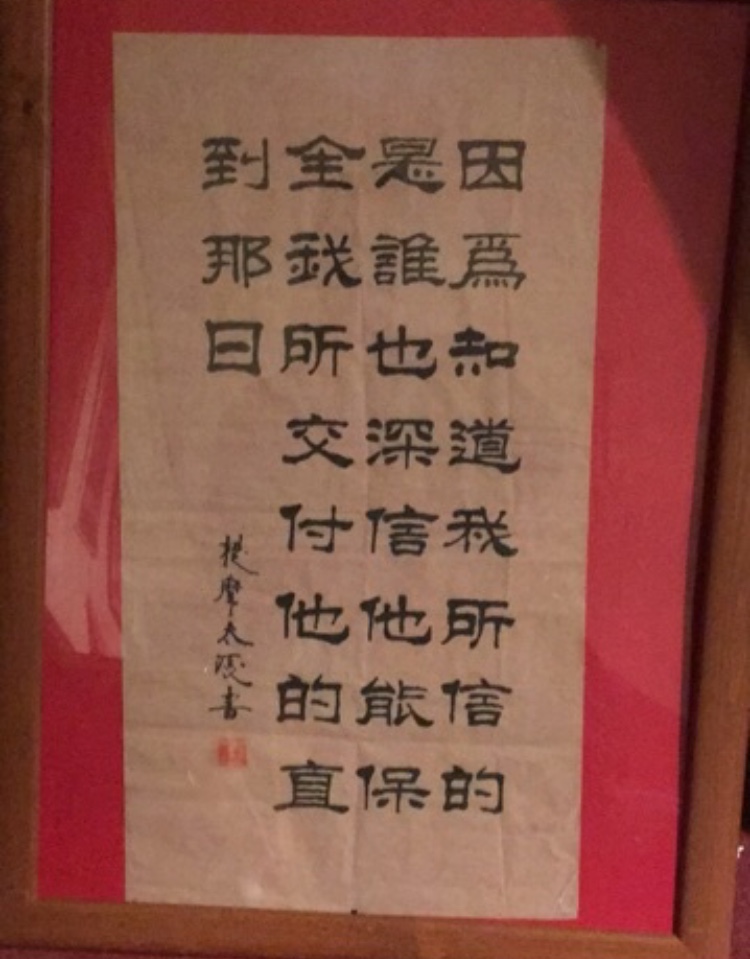 因爲知道我所信的
是誰也深信他能保
全我所交付他的直
到那日
提摩太後書